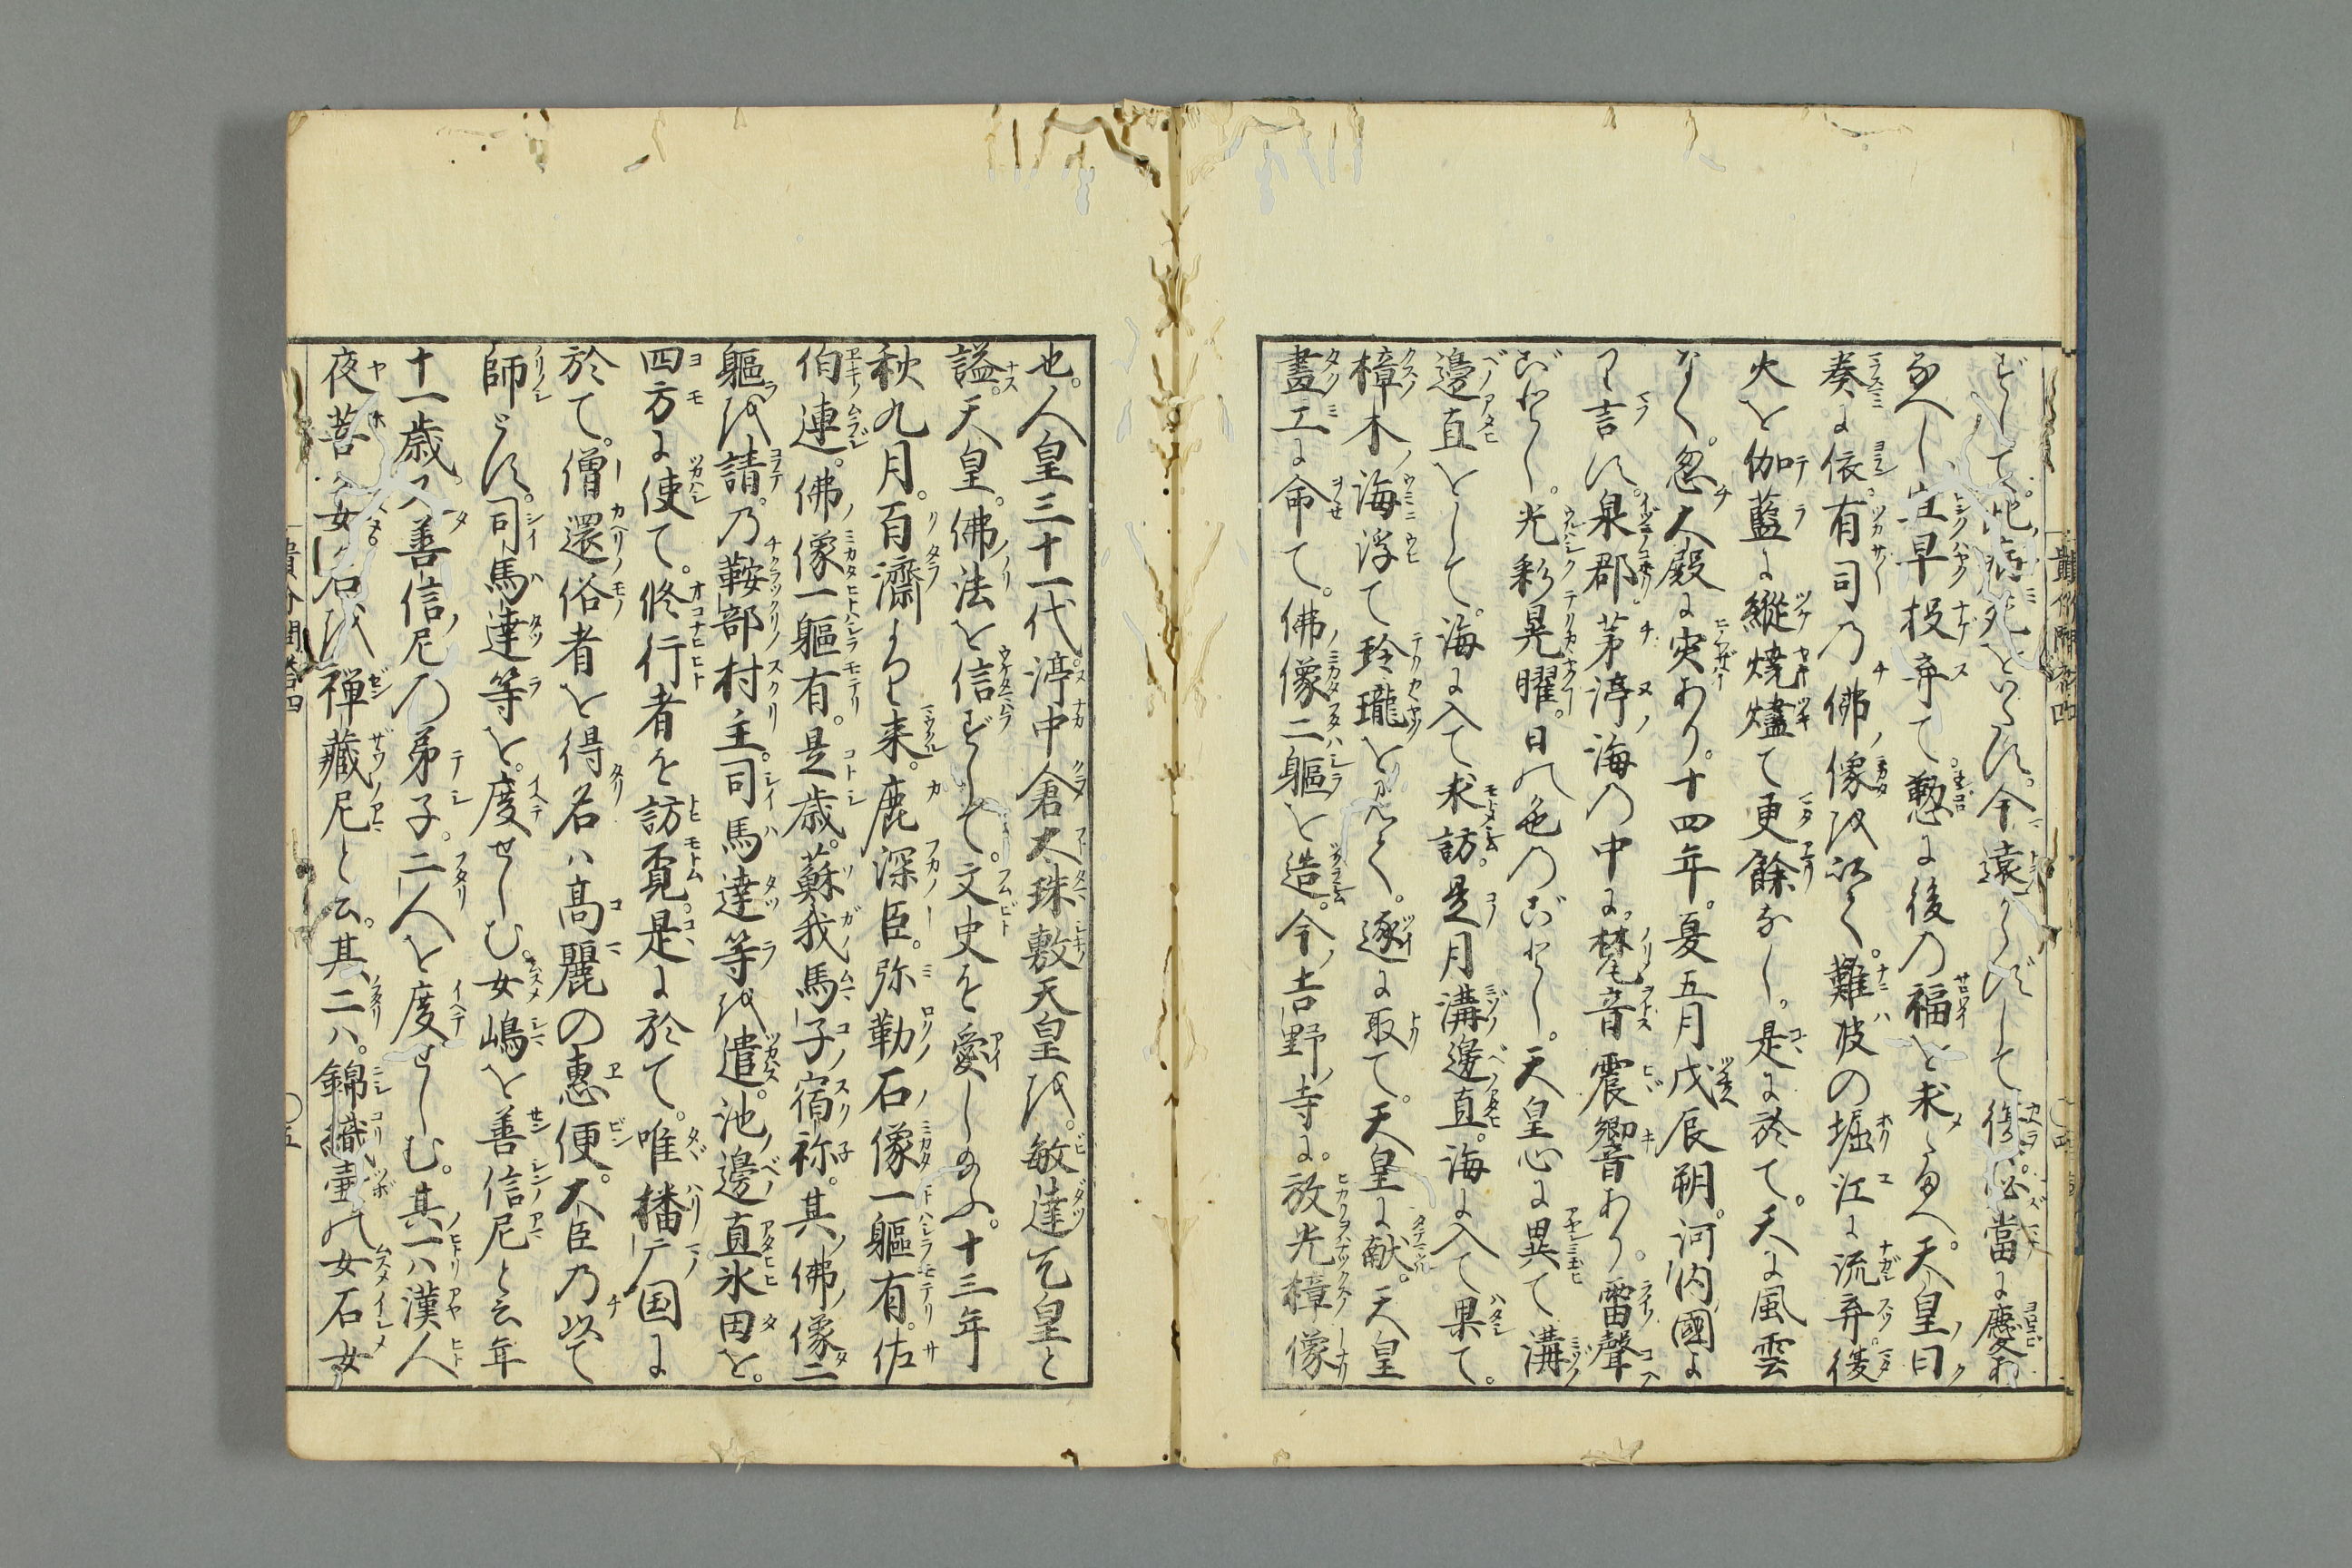 ずして此病死をいたす今遠からずして復必當に慶有
るべし宜早投弃て懃に後の福を求たまへ天皇曰
奏に依有司乃佛像を以て難波の堀江に流弃復
火を伽藍に縱燒燼て更餘なし是に於て天に風雲
なく忽大殿に灾あり十四年夏五月戊辰朔河内國に
て言す泉郡茅渟海の中に梵音震響あり雷聲
ごとし光彩晃曜日の色のごとし天皇心に異て溝
邊直をして海に入て求訪是月溝邊直海に入て果て
樟木海浮て玲瓏を見て遂に取て天皇に献天皇
畫工に命て佛像二軀を造今吉野寺に放光樟像
也人皇三十一代渟中倉太珠敷天皇を敏達天皇と
謚天皇佛法を信ずして文史を愛したまふ十三年
秋九月百濟より来鹿深臣弥勒石像一軀有佐
伯連佛像一軀有是歳蘇我馬子宿祢其佛像二
軀を請乃鞍部村主司馬達等を遣池邊直氷田を
四方に使て修行者を訪覓是に於て唯播广国に
於て僧還俗者を得名ハ高麗の惠便大臣乃以て
師とす司馬達等を度せしむ女嶋を善信尼と云年
十一歳又善信尼の弟子二人を度せしむ其一ハ漢人
夜菩女名を禅藏尼と云其二ハ錦織壷の女石女